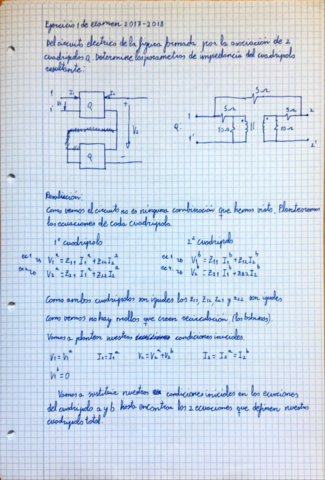 Ejercicio 1 de examen 2017-2018
Del circuito eléctrico de la figura formado por la asociación de 2
cuadripolos Q. Determine los parámetros de impedancia del cuadripolo
resultante.
1 I₁ I₂
V₁ Q +
1'
V₂
Q -
5Ω
1 5Ω 2
Q: 10Ω || 10Ω
1' 2'
Resolución:
Como vemos el circuito no es ninguna combinación que hemos visto. Planteamos
las ecuaciones de cada cuadripolo.
1º cuadripolo 2º cuadripolo
V₁ᵃ = Z₁₁ I₁ᵃ + Z₁₂ I₂ᵃ V₁ᵇ = Z₁₁ I₁ᵇ + Z₁₂ I₂ᵇ
V₂ᵃ = Z₂₁ I₁ᵃ + Z₂₂ I₂ᵃ V₂ᵇ = Z₂₁ I₁ᵇ + Z₂₂ I₂ᵇ
Como ambos cuadripolos son iguales los Z₁₁, Z₁₂, Z₂₁ y Z₂₂ son iguales
Como vemos no hay mallas que creen recirculación (los
Vamos a plantear nuestras condiciones iniciales.
V₁ = V₁ᵃ I₁ = I₁ᵃ V₂ = V₂ᵃ + V₂ᵇ I₂ = I₂ᵃ = I₂ᵇ
V₁ᵇ = 0
Vamos a sustituir nuestras condiciones iniciales en las ecuaciones
del cuadripolo a y b hasta encontrar las 2 ecuaciones que definen nuestro
cuadripolo total.